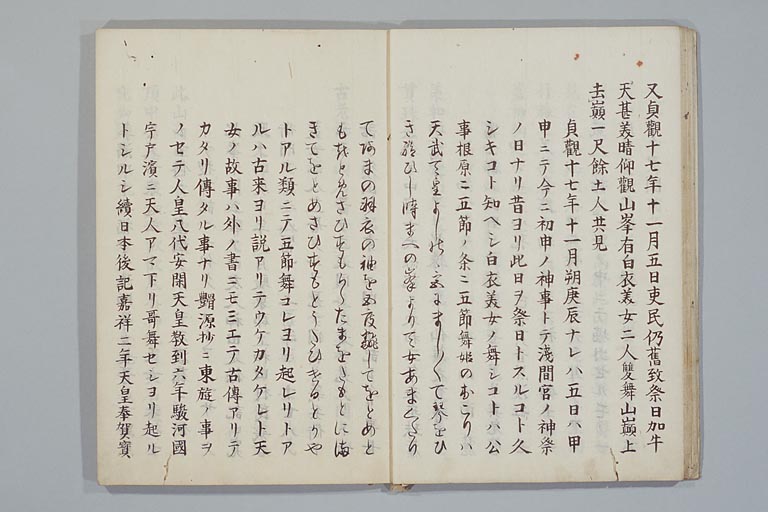 又貞觀十七年十一月五日吏民仍舊致祭日加午
天甚美晴仰觀山峯有白衣美女二人雙舞山巓上
去巓一尺餘土人共見
貞觀十七年十一月朔庚辰ナレハ五日ハ甲
申ニテ今ニ初申ノ神事トテ淺間宮ノ神祭
ノ日ナリ昔ヨリ此日ヲ祭日トスルコト久
シキコト知ヘシ白衣美女ノ舞シコトハ公
事根原ニ五節ノ条ニ五節舞姬のおこりハ
天武天皇よしのゝ宮にましゝて琴をひ
き給ひし時まへの峯より天女あまくたり
てあまの羽衣の袖を五度翻してをとめと
もをとめさひすもからたまをたもとにま
きてをとめさひすもとうたひきるとかや
トアル類ニテ五節舞コレヨリ起レリトア
ルハ古來ヨリ説アリテウケカタケレト天
女ノ故事ハ外ノ書ニモミエテ古傳アリテ
カタリ傳タル事ナリ源抄ニ東遊ノ事ヲ
ノセテ人皇八代安閑天皇敎到六年駿河國
宇戸濱ニ天人アマ下リ哥舞セシヨリ起ル
トシルシ續日本後記嘉祥二年天皇奉賀寳